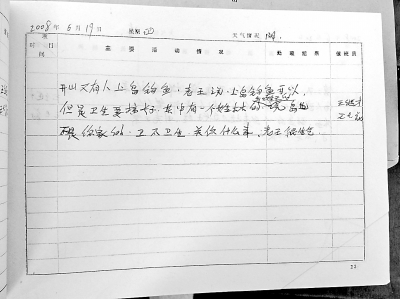 2008年6月19日 星期四 天气情况 阴
项目 时间 主要活动情况 处理结果 值班员
开山又有人上岛钓鱼,老王说,上岛钓鱼可以,
但是卫生要搞好,其中有一个姓 的 岛也
不是你家的,卫不卫生,关你什么事,老王很生气
王继才
王仕花
22